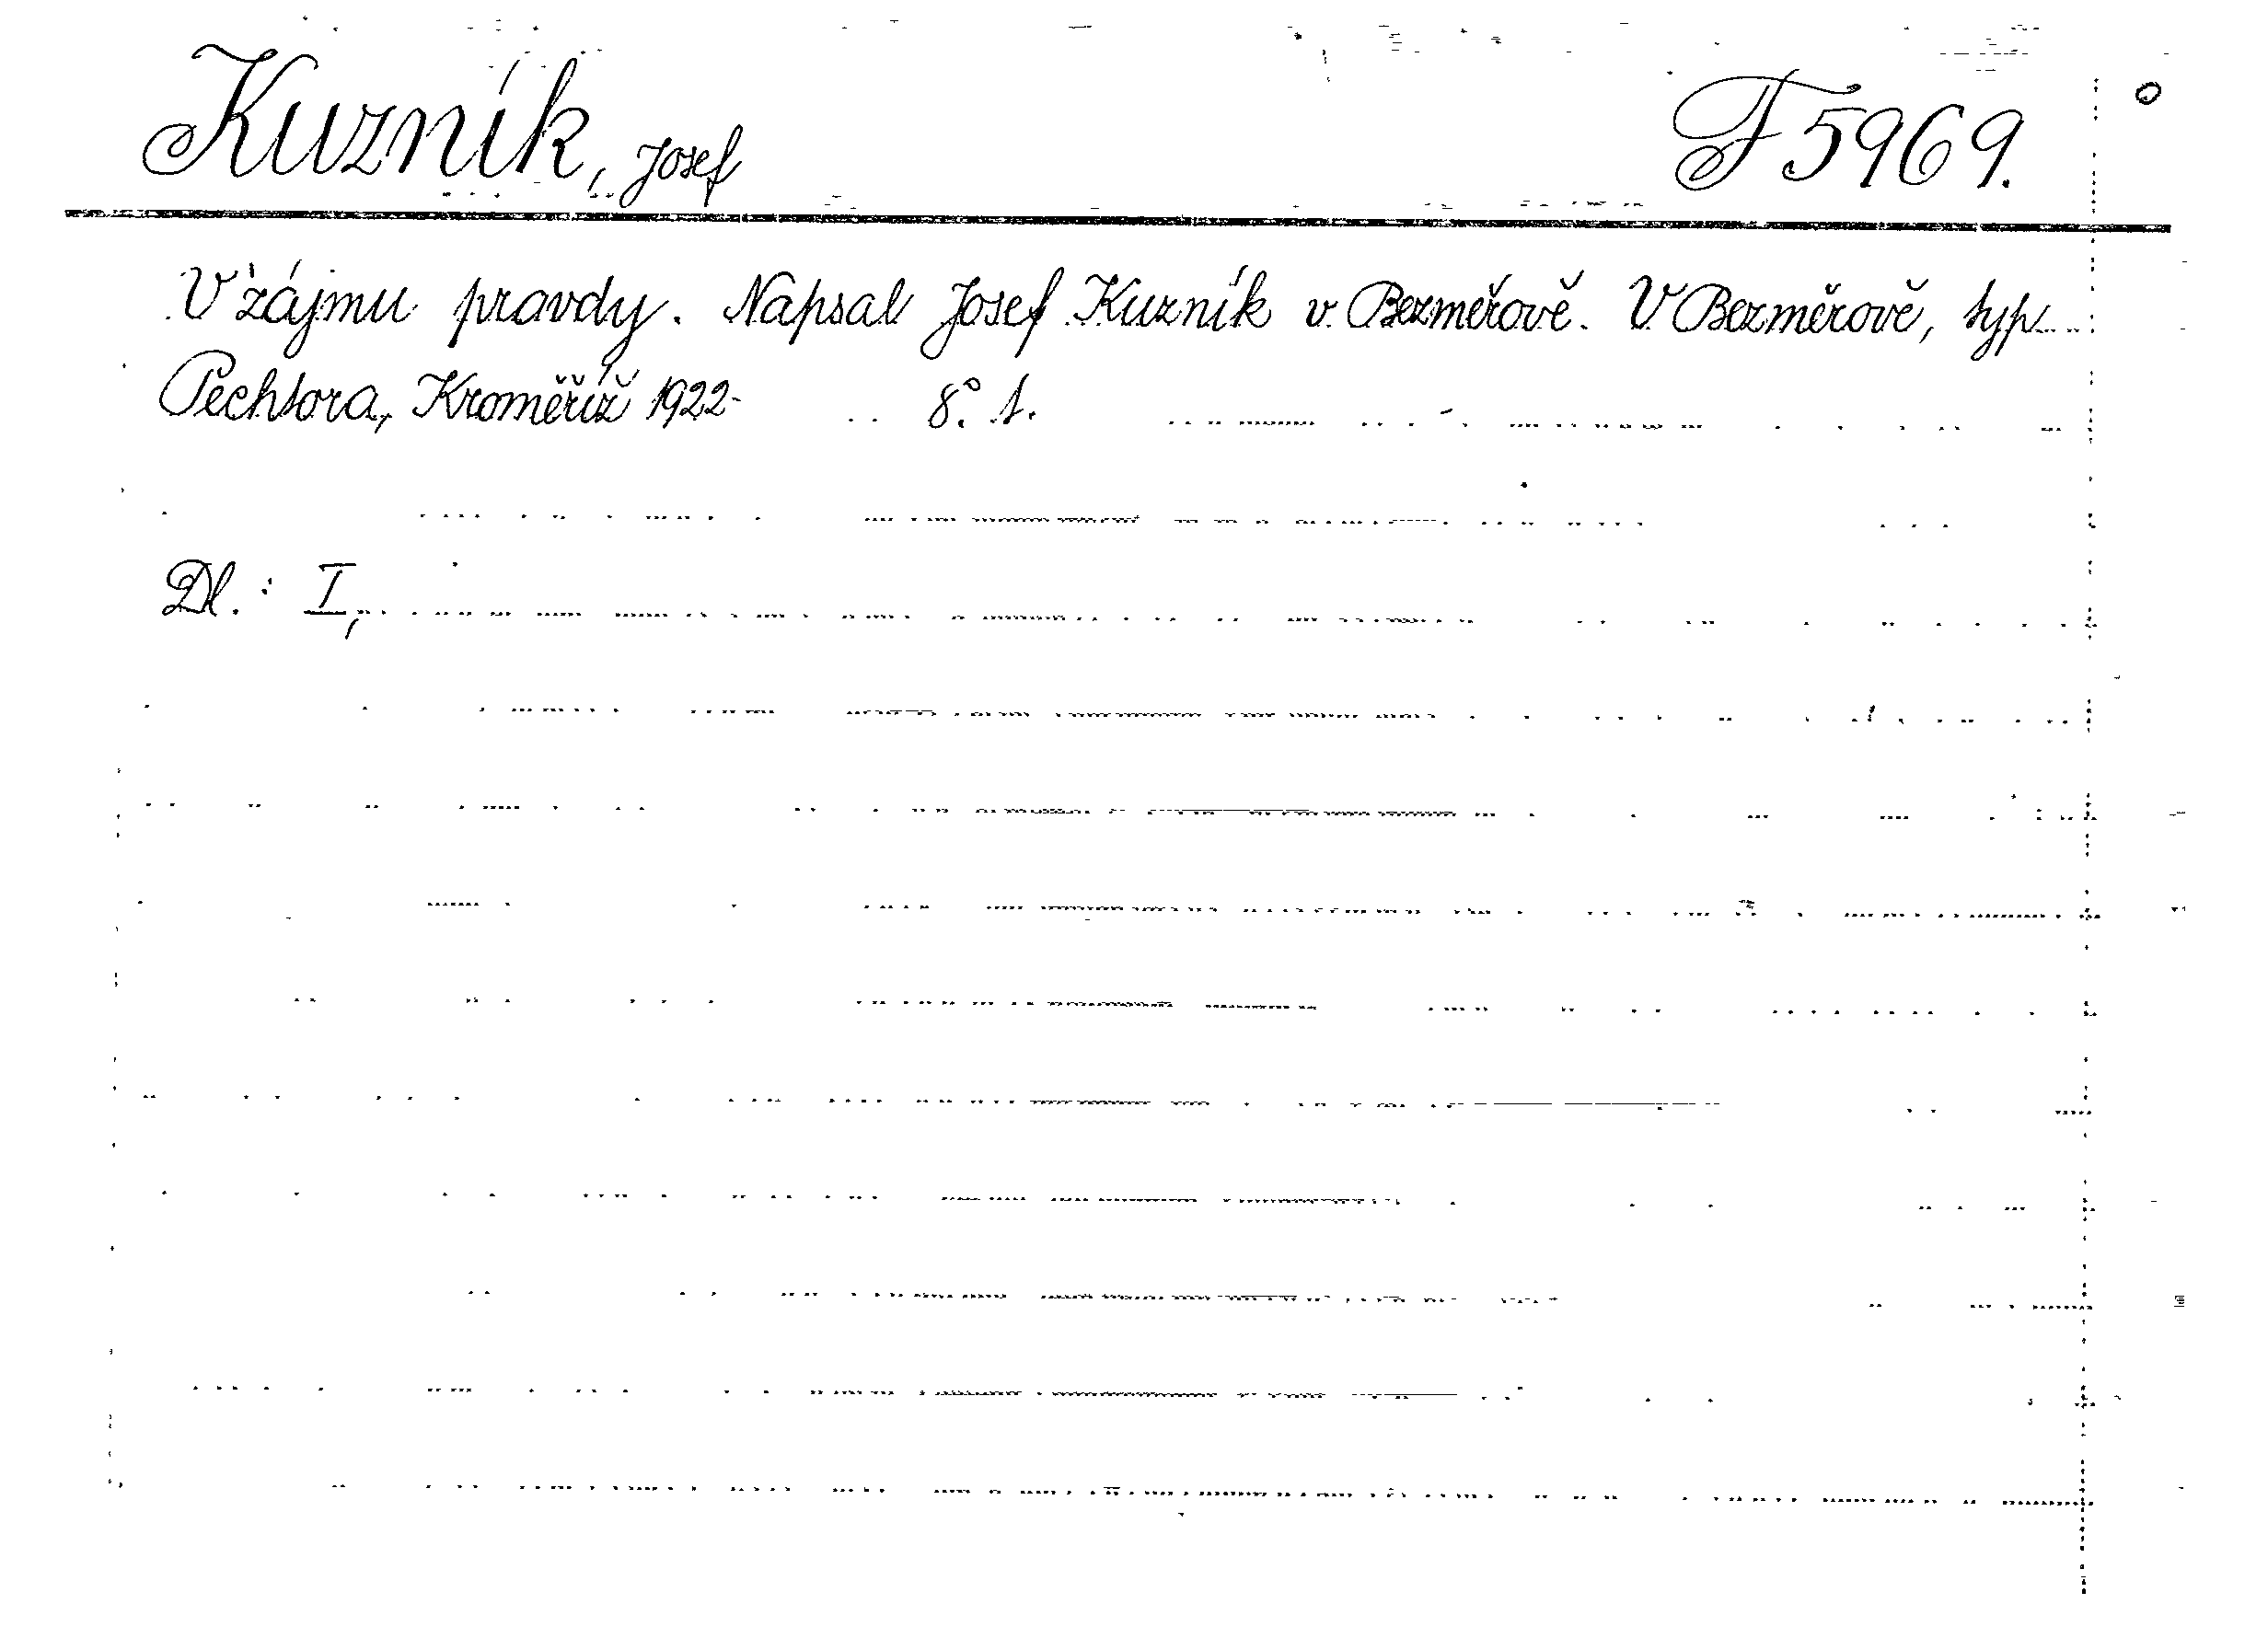 Kuzník, Josef F 5969.
V zájmu pravdy. Napsal Josef Kuzník v Bezměřově. V Bezměrově, typ.
Pechtora, Kroměříž 1922- 8°. 1.
Dl. : I,